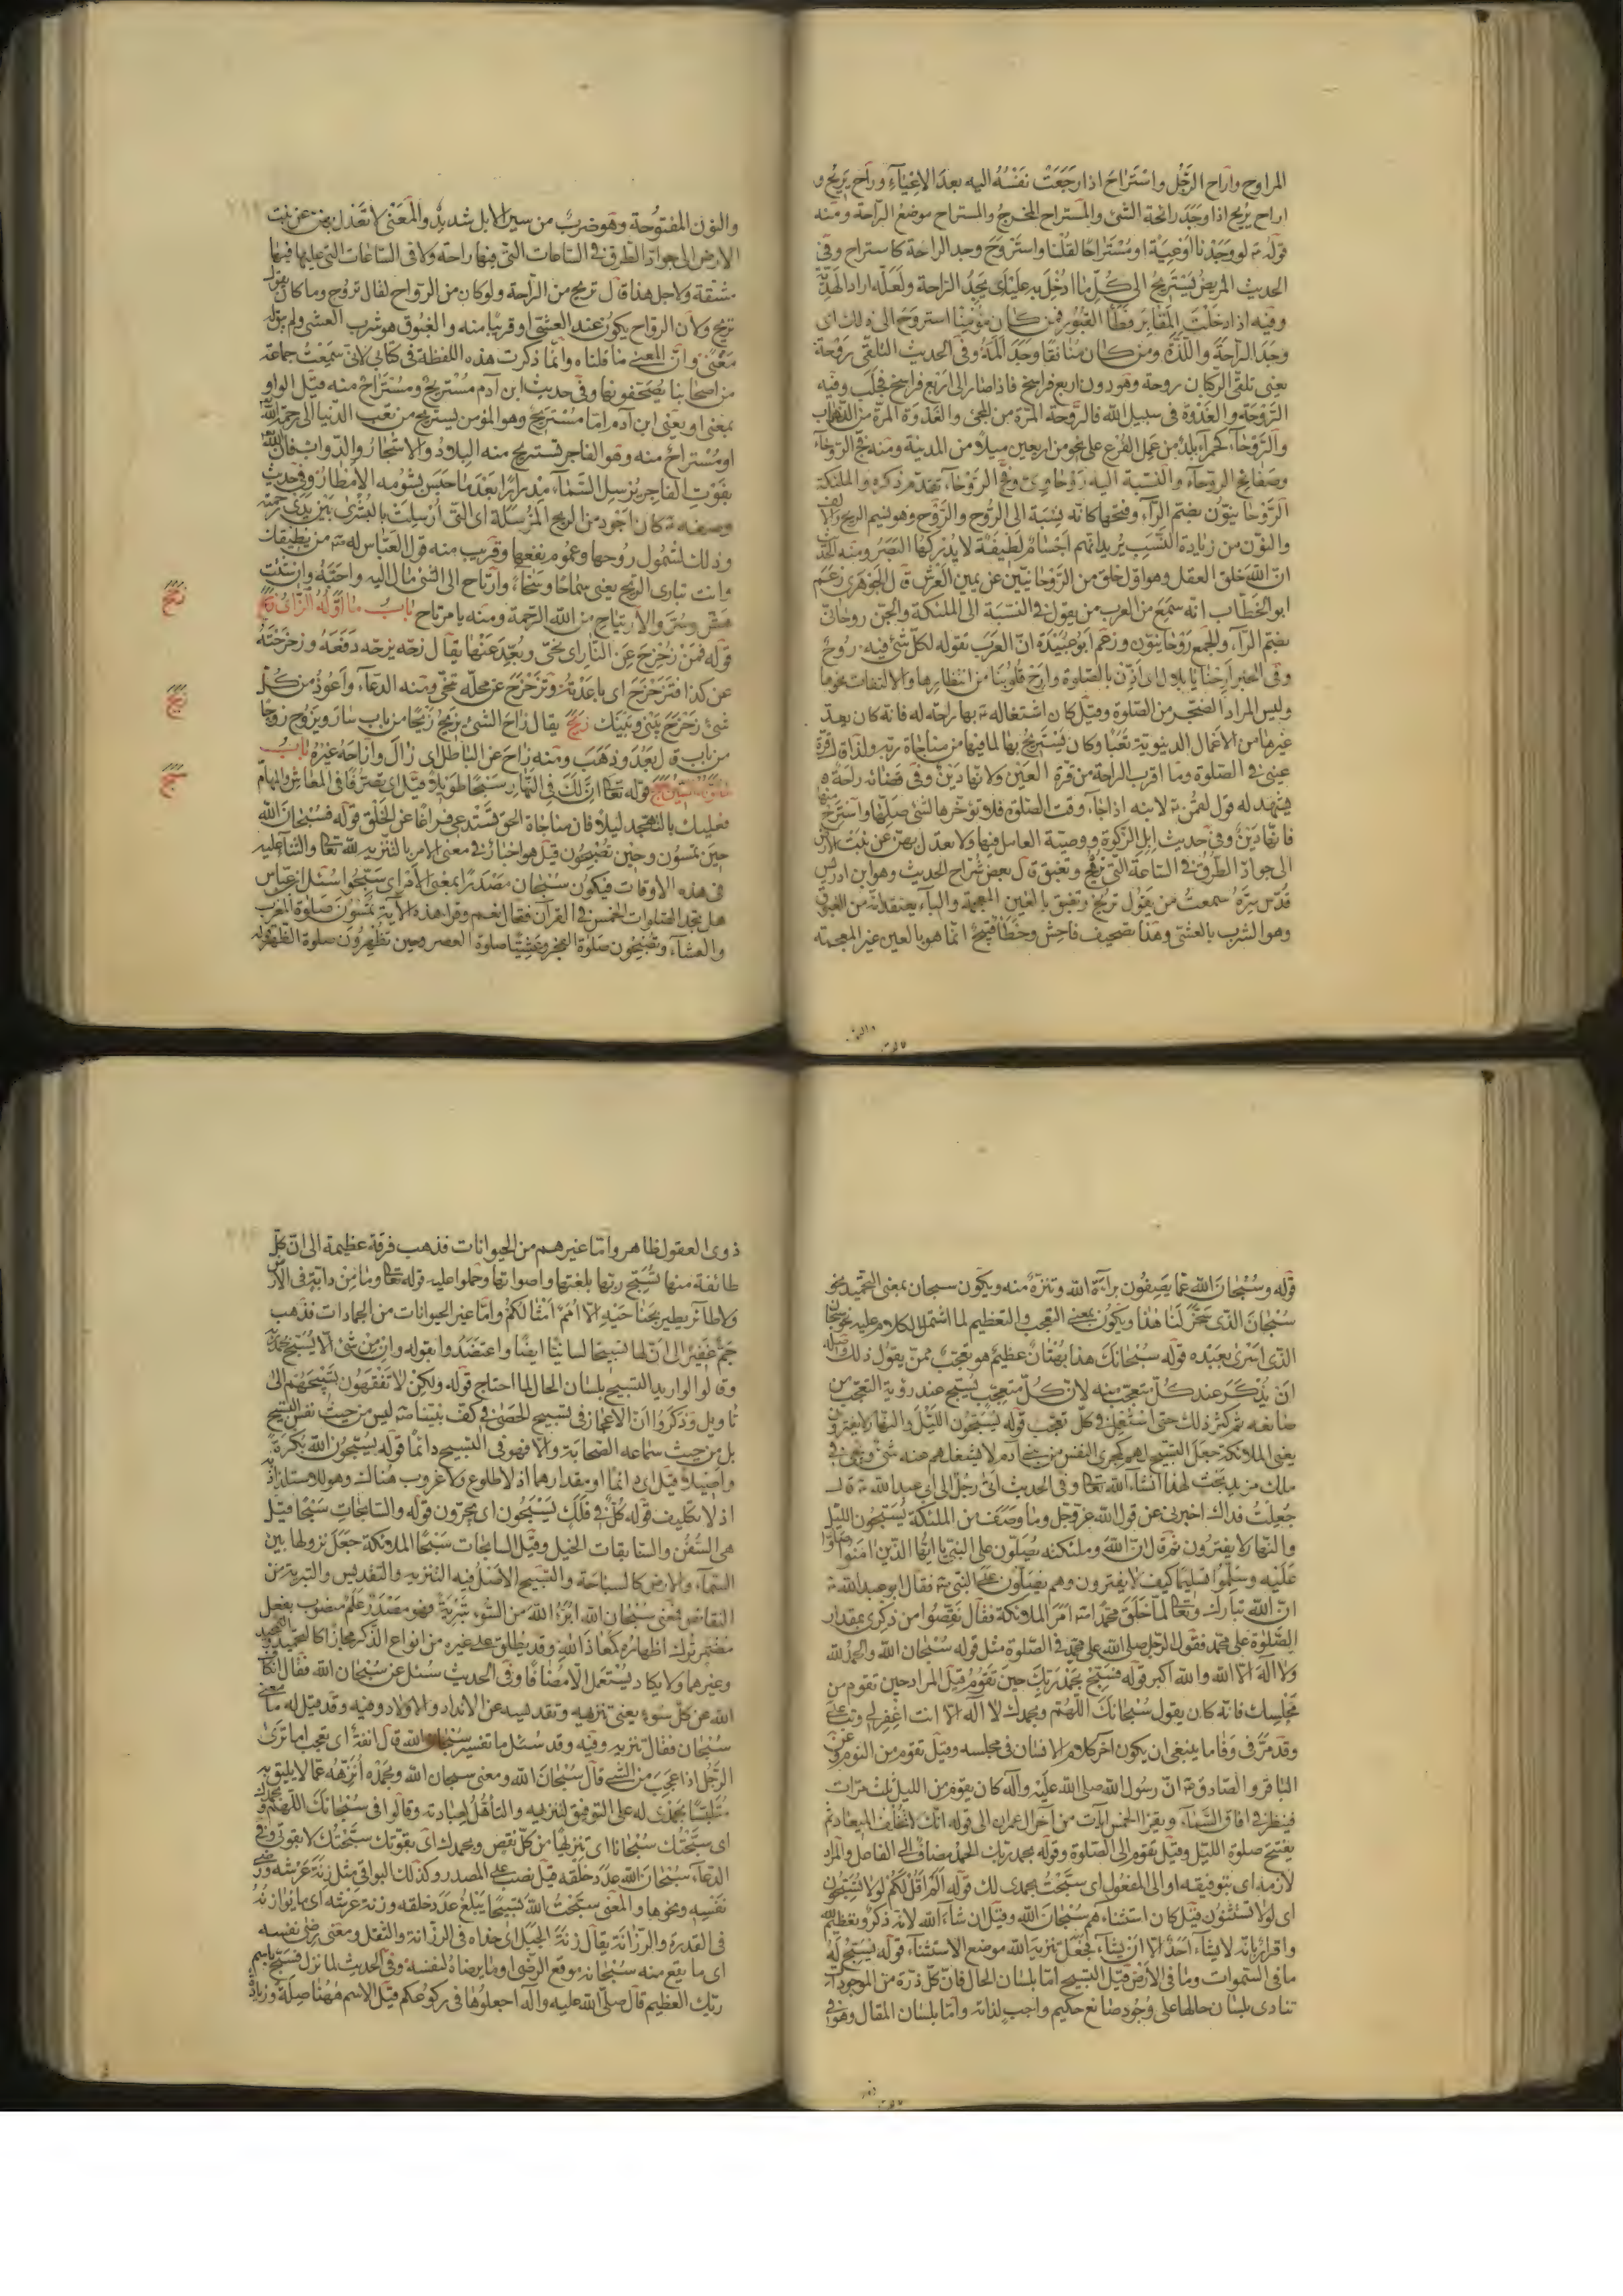 المراوح واراح الرَّجُل واسْتَرَاحَ اذا رَجَعَتْ نَفْسُهُ اليه بعدَ الإعْيَاءِ وراحَ يَرِيحُ و
اراح يُريح اذا وَجَدَ رائحة الشئ والمستراح المخرجُ والمستراح موضعُ الرّاحة ومنه
قوله ع لو وَجَدْنا أوْعِيَةً او مُسْتَرَاحًا لقُلْنا واسْتَرْوَحَ وجد الراحة كاستراح وفى
الحديث المريضُ يَسْتَرِيحُ الى كُلِّ ما اُدْخِلَ به عليْنَاى يَجِدُ الرّاحة ولَعَلّه اراد الهَدِيّة
وفيه اذا دخَلْتَ المقَابِرَ فَطَأ القُبُورَ فمن كان مُؤْمِنًا استروحَ الى ذلك اى
وجَدَ الرّاحَةَ واللَّذَّة ومن كان مُنافقًا وجَدَ ألَمَهُ وفى الحديث التلقّى رَوْحة
يعنى تلقّى الرّكبان روحة وهو دون اربع فراسخ فاذا صار الى اربع فراسخ فجلب وفيه
الرَّوْحَةُ والغَدْوَة فى سبيل الله فالرَّوحة المرّة من المجئ والغَدْوَة المرّة من الذّهاب
والرَّوْحَاءُ كَحَمراءَ بلدٌ من عَمَل الفُرْع على نحو من اربعين ميلًا من المدينة ومنه فجّ الرّوحاء
وصَفائح الروحاء والنسبة اليه رَوْحاوِىّ وفجّ الرَّوْحَاء تقدّم ذكره والملئكة
الرُّوحانيّون بضمّ الرّاء وفتحها كانّه نِسْبَة الى الرُّوح والرَّوح وهو نسيم الريح والالف
والنون من زيادة النَّسَب يُريد انّهم اجْسَامٌ لَطِيفَة لا يُدْركُهَا البَصَرُ ومنه الحديث
انّ الله خلق العقل وهو اوّل خلق من الرَّوْحانيّين عن يمين العَرْش قال الجوهَرى زَعَمَ
ابو الخطّاب انّه سَمِعَ من العرب من يقول فى النّسْبَة الى الملئكة والجنّ رُوحانىّ
بضمّ الرّاء والجمع رُوْحانيّون وزعم ابو عُبَيْدَة انّ العرَبَ تقوله لكلّ شئ فيه رُوحٌ
وفى الخبر أرِحْنا يا بِلال اى أذِّنْ بالصّلوة وأرِحْ قلُوبَنَا من انتظارها والالتفات نحوها
وليس المراد الضّجَر من الصّلوة وقيل كان اشتغاله ع بها راحته له فانّه كان يعدّ
غيرها من الاعمال الدنيويّة تَعَبًا وكان يَسْتَرِيحُ بها لما فيها من مناجاة ربّه ولذا قال قُرّةُ
عينى فى الصّلوة وما اقرب الراحة من قُرّة العَيْن ولانّها دَيْنٌ وفى قضائه راحَةٌ
يشهد له قول لقمٰن ع لابنه اذا جاء وقت الصّلوة فلا تؤخرها لشئ صَلِّها واسْتَرِحْ منها
فانّها دَيْنٌ وفى حديث ابل الزكوة ووصيّة العامل فيها ولا تعدل بهنّ عن نبْت الارض
الى جوادّ الطّرُق فى السّاعة الّتى تُرِيحُ وتغبق قال بعض شُراح الحديث وهو ابن ادريس
قدّس سِرّهُ سمعتُ من يقول تريح وتغبق بالغَين المعجمة والباء يعتقد انّه من الغبوق
وهو الشرب بالعشىّ وهٰذا تصحيف فاحِش وخَطأٌ قبِيحٌ انّما هو بالعين غير المعجمة
والنون المفتوحة وهو ضربٌ من سير الابل شديدٌ والمعنى لا تَعْدل بهنّ عن نبت
الارض الى جوادّ الطرق فى السّاعات التى فيها راحة ولا فى السّاعات التى عليها فيها
مشقة ولاجل هذا قال تريح من الرّاحة ولو كان من الرّواح لقال تروح وما كان يقول
تريح ولانّ الرّواح يكون عند العشىّ او قريبًا منه والغَبُوق هو شرب العشى ولم يقله
معنًى وانّ المعنى ما قلناه وانّما ذكرت هذه اللفظة فى كتابى لانّى سَمِعْتُ جماعة
من اصحابنا يُصَحّفونها وفى حديث ابن آدم مُسْتريحٌ ومُسْتَراحٌ منه قيل الواو
بمعنى او يعنى ابن آدم امّا مُسْتريحٌ وهو المؤمن يستريح من تعَب الدّنيا الى رحمة الله
او مُسْتراحٌ منه وهو الفاجر فتستريح منه البِلادُ والاشجارُ والدّوابّ فانّ الله
بفَوْت الفاجر يُرسِل السّماءَ مِدْرارًا بَعْدَ ما حَبَسَ بشؤمه الأمْطارَ وفى حديث
وصفه ع كان اَجْوَد من الريح المُرْسَلَة اى التى اُرْسِلَت بالبُشرى بَيْنَ يَدَىْ رحمته
وذلك لشُمول رُوحها وعُموم نفعِها وقريب منه قول العبّاس له ع من يُطِيقك
وانت تبارى الرّيح يعنى سَماحًا وسَخاءً وارتاح الى الشئ مال اليه واحبّهُ وارتحت
وسُرّ والارتياح من الله الرّحمة ومنه يا مرتاح بابُ ما اوّلهُ الزّاى زحح
قوله فمَنْ زُحْزِحَ عَنِ النّارِ اى نُحِّىَ وبُعِّدَ عَنْها يقال زحّه يزحّه دَفَعَهُ وزَحْزَحْتُهُ
عن كذا فتَزَحْزَحَ اى باعَدْتُهُ وتزَحْزَحَ عن محلّه تنحّى ومنه الدعاء وأعُوذُ من كلّ
شئ زَحْزَحَ بَيْنى وبَيْنَك زَيَحَ يقال زاحَ الشئ يزيحُ زَيْحًا من باب سارَ ويَزُوح زَوْحًا
من باب قال بَعُدَ وذَهَبَ ومنه زاحَ عن الباطل اى زالَ وازاحَهُ غيْرُهُ بابُ
ما اوّله السّين سبح قوله تعالى انّ لَكَ فى النّهار سَبْحًا طويلًا قيل اى تصرّفًا فى المعاش والمهامّ
فعليك بالتهجّد ليلًا فان مناجاة الحقّ تستدعى فراغًا عن الخلْق قوله فسُبْحَانَ الله
حين تُمسُون وحين تُصْبحُون قيل هو اخبارٌ فى معنى الامر بالتنزيه لله تعالى والثناء عليه
فى هذه الاوقات فيكون سُبْحان مصْدَرًا بمعنى الامر اى سَبّحوا سئل ابن عبّاس
هل تجد الصّلوات الخمس فى القرآن فقال نعم وقرا هذه الآية تُمْسُونَ صَلوة المغرب
والعشاء وتُصْبِحُون صَلوة الفجر وعَشِيًّا صلوة العصر وحين تُظْهِرُون صلوة الظّهر قوله
قوله وسُبْحانَ الله عمّا يَصِفُون براءَة الله وتنزّه منه ويكون سبحان بمعنى التحميد نحو
سُبْحانَ الّذى سَخّرَ لَنا هٰذا ويكون بمعنى التعجّب والتعظيم لما اشتمل الكلام عليه نحو سُبحان
الذى اَسْرَى بعَبْدِه قوله سُبْحانكَ هذا بُهْتَانٌ عظيم هو تعجّب ممّن يقول ذلك واصله
ان يُذْكَرَ عند كلّ متعجّب منه لانّ كلّ متعجّب يُسبّح عند رؤية التعجّب من
صانعه ثم كثر ذلك حتى استُعمِلَ فى كلّ تعجّب قوله يُسَبّحُون اللّيْلَ والنّهارَ لا يَفْتُرونَ
يعنى الملائكة جعل التسبيح لهم كمجرى النّفَس من بنى آدم لا يَشغلهم عنه شئ ويجئ فى
ملك مزيد بحث لهذا انشاء الله تعالى وفى الحديث اتى رجُلٌ الى ابى عبد الله ع قال
جُعلتُ فداك اخبرنى عن قول الله عزّ وجلّ وما وَصَفَ من الملئكة يُسَبّحون الليل
والنّهار لا يفترون ثم قال انّ الله وملئكته يُصَلّون على النبىّ يا ايّها الّذين آمَنوا صَلّوا
عَلَيْه وسَلّموا تسليمًا كيف لا يفترون وهم يُصَلّون على النبىّ ع فقال ابو عبد الله ع
انّ الله تبارك وتعالى لمّا خَلَق محمّدًا ص امَرَ الملائكة فقال نقّصُوا من ذكرى بمقدار
الصّلوة على محمّد فقول الرّجل صلى الله على محمّد فى الصّلوة مثل قوله سُبْحان الله والحمدُ لله
ولا الٰه الّا الله والله اكبر قوله فَسَبّحْ بحَمْدِ رَبّكَ حينَ تَقُومُ قيل المراد حين تقوم من
مَجْلِسك فانّه كان يقول سُبْحَانَكَ اللّهُمّ وبحمدك لا الٰه الّا انت اغفر لى وتب علىّ
وقد مرّ فى وفا ما ينبغى ان يكون آخر كلام الانسان فى مجلسه وقيل تقوم من النوم وعن
الباقر والصادق ع انّ رسول الله صلى الله عليه وآله كان يقوم من الليل ثلث مرّات
فينظر فى آفاق السّماء ويقرأ الخمس آيات من آخر آل عمران الى قوله انّك لا تُخْلِف الميعاد ثم
يفتتح صلوة الليل وقيل تقوم الى الصّلوة وقوله بحمد ربّك الحمد مضافٌ الى الفاعل والمراد
لازمه اى بتوفيقه او الى المفعول اى سبّحْتُ بحمدى لك قوله اَلَمْ اقُل لَكُمْ لولا تُسَبّحُون
اى لولا تَسْتَثنون قيل كان استثناءهم سُبْحانَ الله وقيل ان شاء الله لانّه ذكرٌ وتعظيم لله
واقرارٌ بانّه لا يشاء احَدٌ الّا ان يشاء فجعَلَ تنزيه الله موضع الاستثناء قوله يُسَبّحُ لَهُ
ما فى السّموات وما فى الأرض قيل التسبيح امّا بلسان الحال فانّ كلّ ذرّة من الموجودات
تنادى بلسان حالها على وجود صانع حكيم واجب لذاته وامّا بلسان المقال وهو فى
ذوى العقول ظاهر وامّا غيرهم من الحيوانات فذهب فرقة عظيمة الى انّ كلّ
طائفة منها تُسَبّح ربّها بلغتها واصواتها وحملوا عليه قوله تعالى وما مِنْ دابّة فى الارض
ولا طائر يطير بجَناحَيْه الّا اُمَمٌ اَمثالكُمْ وامّا غير الحيوانات من الجمادات فذهب
جَمٌّ غَفيرٌ الى انّ لها تسبيحًا لسانيًّا ايضًا واعتَضَدُوا بقوله وانْ مِنْ شئ الّا يُسَبّح بحَمْدِه
وقالوا لو اريد التسبيح بلسان الحال لما احتاج قوله ولكنْ لا تَفْقَهون تَسْبِيحَهُم الى
تاويل وذكَرُوا انّ الاعجاز فى تسبيح الحصَى فى كفّ نبيّنا ص ليس من حيث نفس التسبيح
بل من حيث سماعه الصّحابة والّا فهو فى التسبيح دائمًا قوله يُسَبّحُونَ الله بُكْرَةً
واَصِيلًا قيل اى دائمًا او مقدارهما اذ لا طلوع ولا غروب هُناك وهو للاستلذاذ به
اذ لا تكليف قوله كُلٌّ فى فلَك يَسْبَحُون اى يجرون قوله والسّابحات سَبْحًا قيل
هى السُّفُن والسّابقات الخيل وقيل السابحات سَبْحًا الملائكة جَعَل نزولها بين
السّماء والارض كالسباحة والتسبيح الاَصْلُ فيه التنزيه والتقديس والتبرئة من
النقائص فمعنى سُبْحان الله اُبَرّئُ الله من السُّوءِ تَبرِئَةً فهو مَصْدَرٌ عَلَمٌ منصوب بفعل
مُضمَر تُرك اظهاره كمَعاذَ الله وقد يُطلَق على غيره من انواع الذّكر مجازًا كالتحميد والتمجيد
وغيرها ولا يكاد يُسْتَعمَل الّا مضافًا وفى الحديث سُئل عن سُبْحان الله فقال انكاف
الله عن كلّ سُوء يعنى تنزيهه وتقديسه عن الانداد والاولاد وفيه وقد قيل له ما معنى
سُبْحان فقال تنزيه وفيه وقد سُئل ما تفسير سُبْحان الله قال انفة اى تعجب اما ترَى
الرّجُل اذا عَجِبَ من الشئ قال سُبْحانَ الله ومعنى سبحان الله وبحَمْدِه اُنَزّهُه عمّا لا يليق به
متَلبّسًا بحمْدى له على التوفيق لتنزيهه والتأهّل لعبادته وقالوا فى سُبْحانكَ اللّهُمّ وبحمدك
اى سبّحْتُك سُبْحانًا اى تنزيهًا من كلّ نقص وبحمدك اى بقوّتك سبّحْتُك لا بقوّتى وفى
الدعاء سُبْحانَ الله عدَدَ خَلْقه قيل نصب على المصدر وكذلك البواقى مثل زِنَةَ عَرْشِه ورضى
نَفْسِه ونحوها والمعنى سبّحْتُ الله تَسْبِيحًا يَبْلغُ عدَدَ خلقه وزنة عَرْشه اى ما يُوازِنُهُ
فى القدر والرّزانَة يقال زِنَةُ الجبَل اى حذاه فى الرّزانة والثّقل ومعنى رِضَى نفسه
اى ما يقع منه سُبْحانه موقع الرضى او ما يرضاه لنفسه وفى الحديث لمّا نزل فسبّح باسم
ربّك العظيم قال صلّى الله عليه واٰله اجعلُوها فى ركوعكم قيل الاسم هٰهنا صِلَة وزيادة